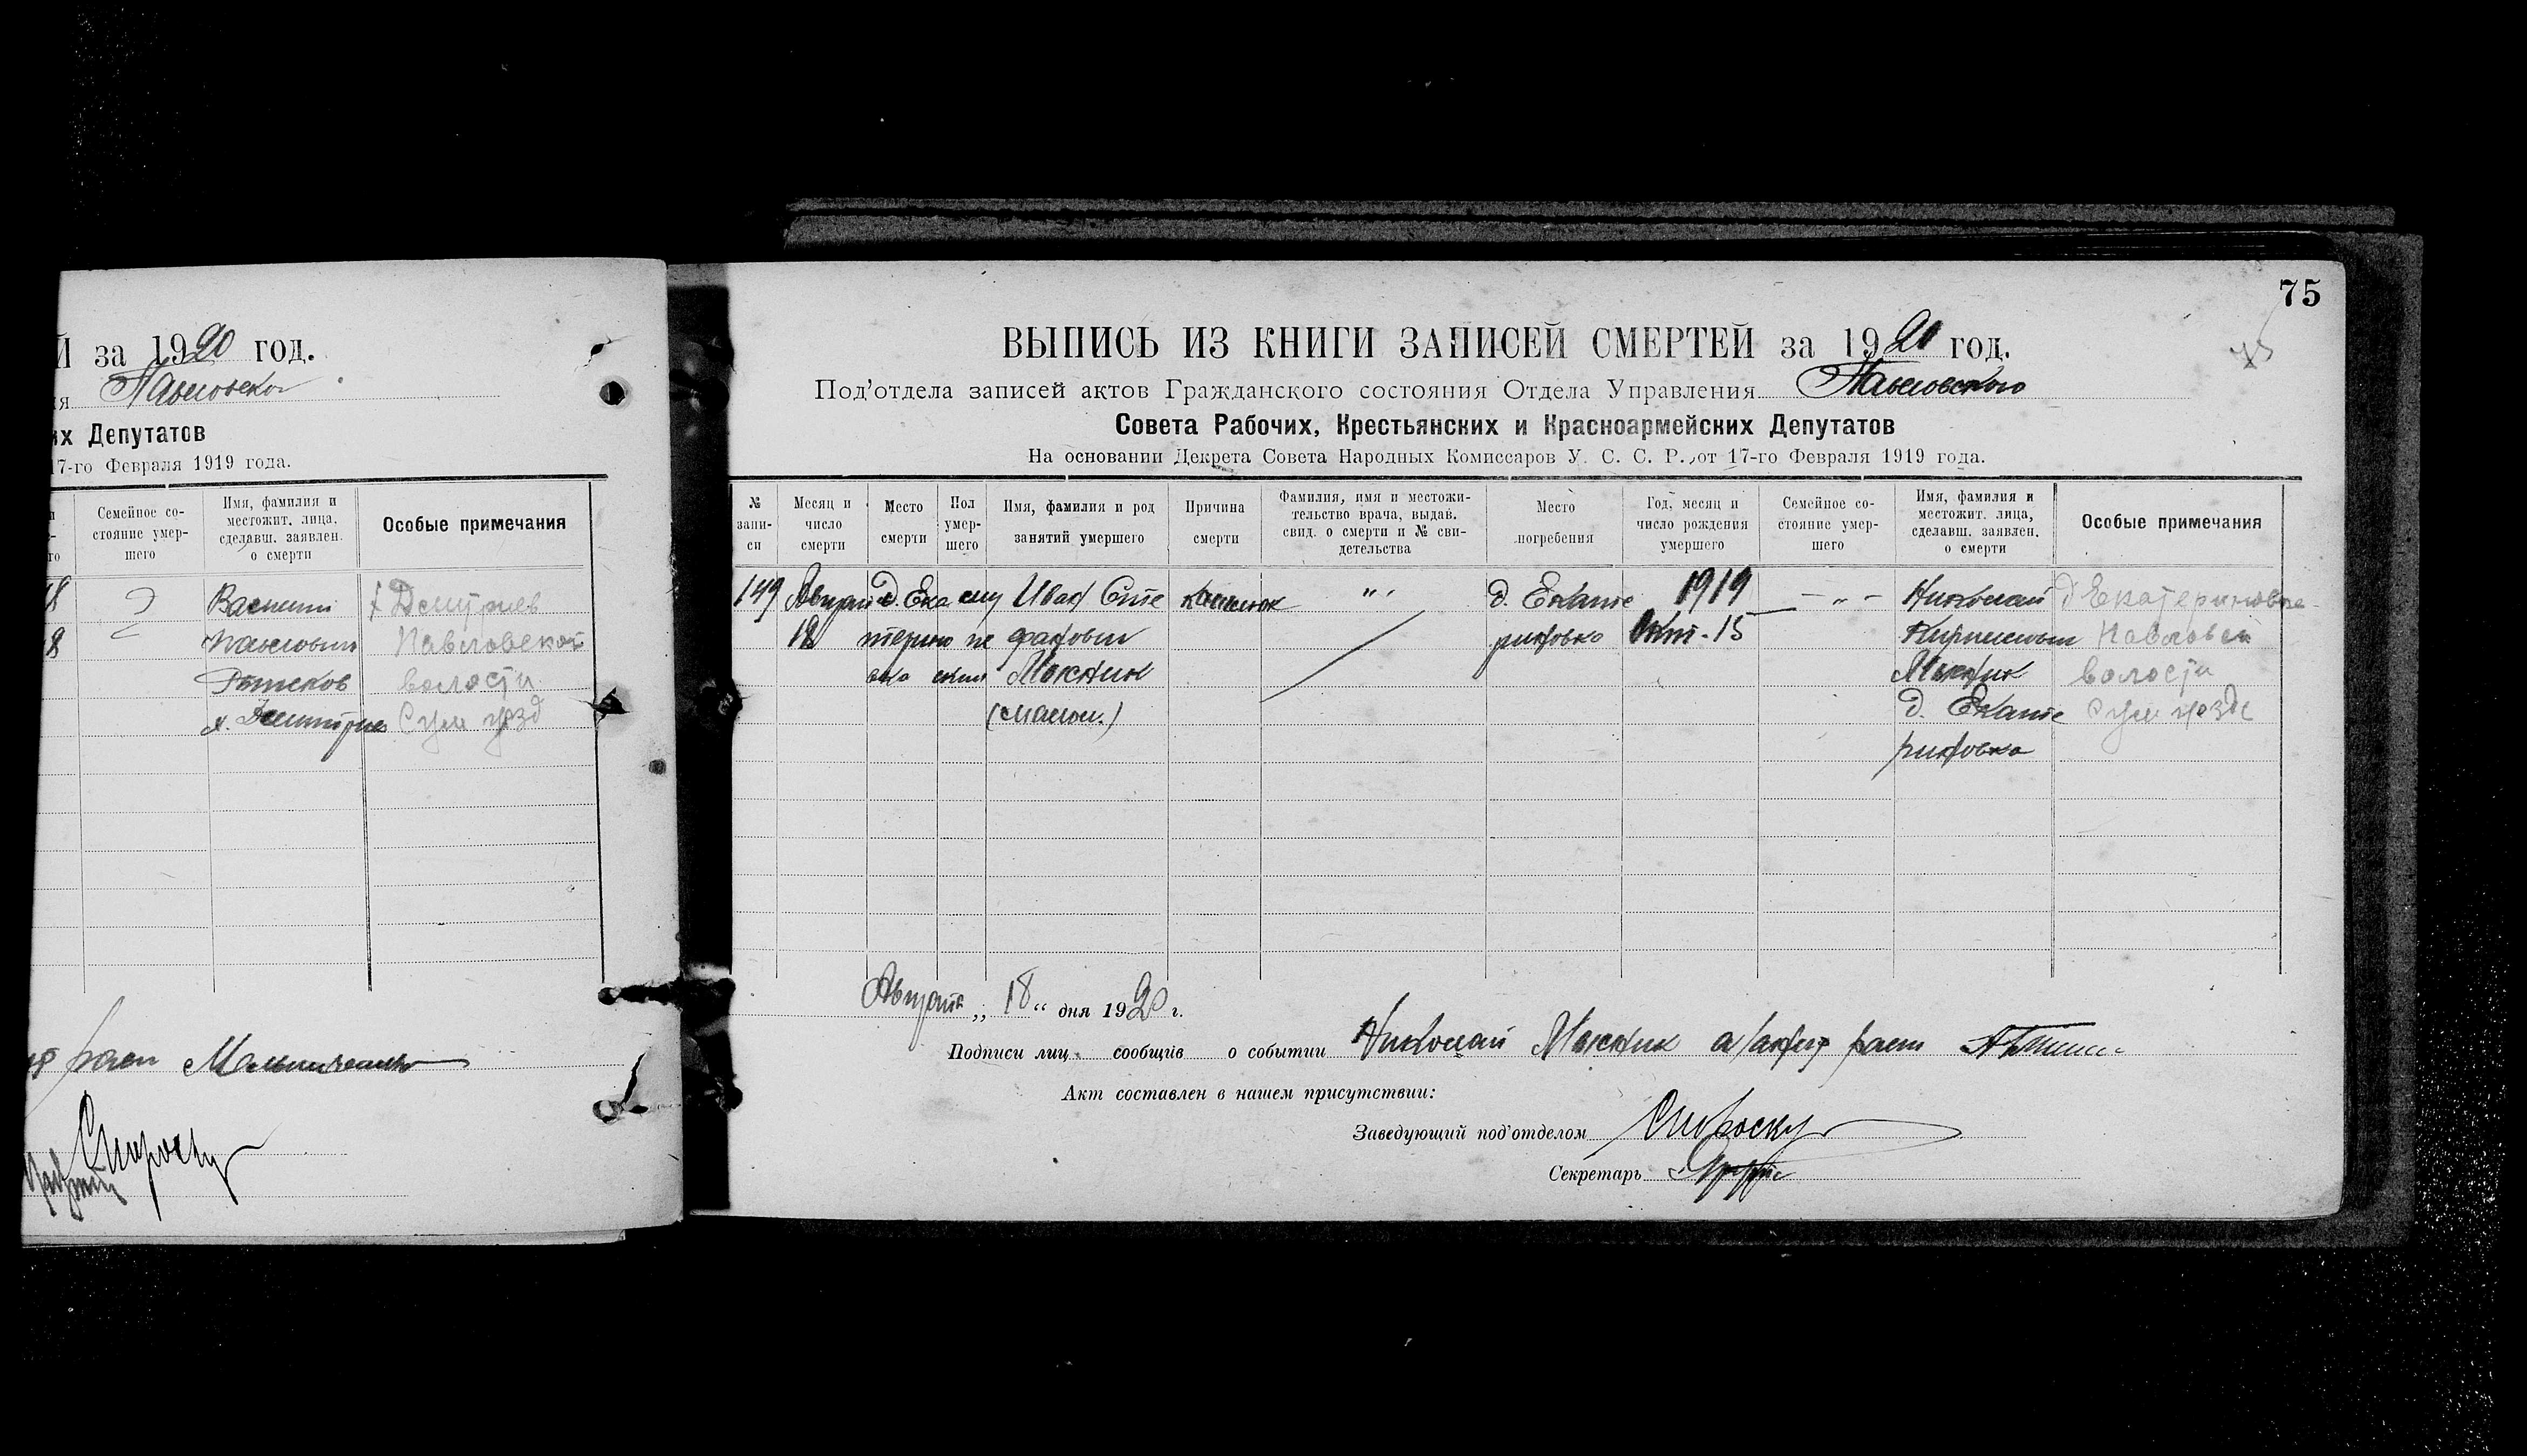 Й за 1920 год.
я Павловской
их Депутатов
17-го Февраля 1919 года.
Семейное со-
стояние умер-
шего
Имя, фамилия и
местожит. лица,
сделавш. заявлен.
о смерти
Особые примечания
8
8
Василий
Павлович
х. Дмитрие
Дмитриев
Павловской
волости
Сум уезд
расп
75
75
ВЫПИСЬ ИЗ КНИГИ ЗАПИСЕЙ СМЕРТЕЙ за 1920 год.
Под'отдела записей актов Гражданского состояния Отдела Управления Павловского
Совета Рабочих, Крестьянских и Красноармейских Депутатов
На основании Декрета Совета Народных Комиссаров У. С. С. Р., от 17-го Февраля 1919 года.
№
запи-
си
Месяц и
число
смерти
Место
смерти
Пол
умер-
шего
Имя, фамилия и род
занятий умершего
Причина
смерти
Фамилия, имя и местожи-
тельство врача, выдав.
свид. о смерти и № сви-
детельства
Место
погребения
Год, месяц и
число рождения
умершего
Семейное со-
стояние умер-
шего
Имя, фамилия и
местожит. лица,
сделавш. заявлен.
о смерти
Особые примечания
149
Август
18
д. Ека
терино
вка
Иван Сте
фанович
(малол.)
кашлюк
"
д. Екате
риновка
1919
Окт. 15
— „ —
Николай
Кириллович
д. Екате
риновка
д Екатериновке
Павловск
волости
Сум уезда
Августа „ 18 “ дня 1920 г.
Подписи лиц сообщів о событии Николай
Акт составлен в нашем присутствии:
Заведующий под'отделом
Секретарь